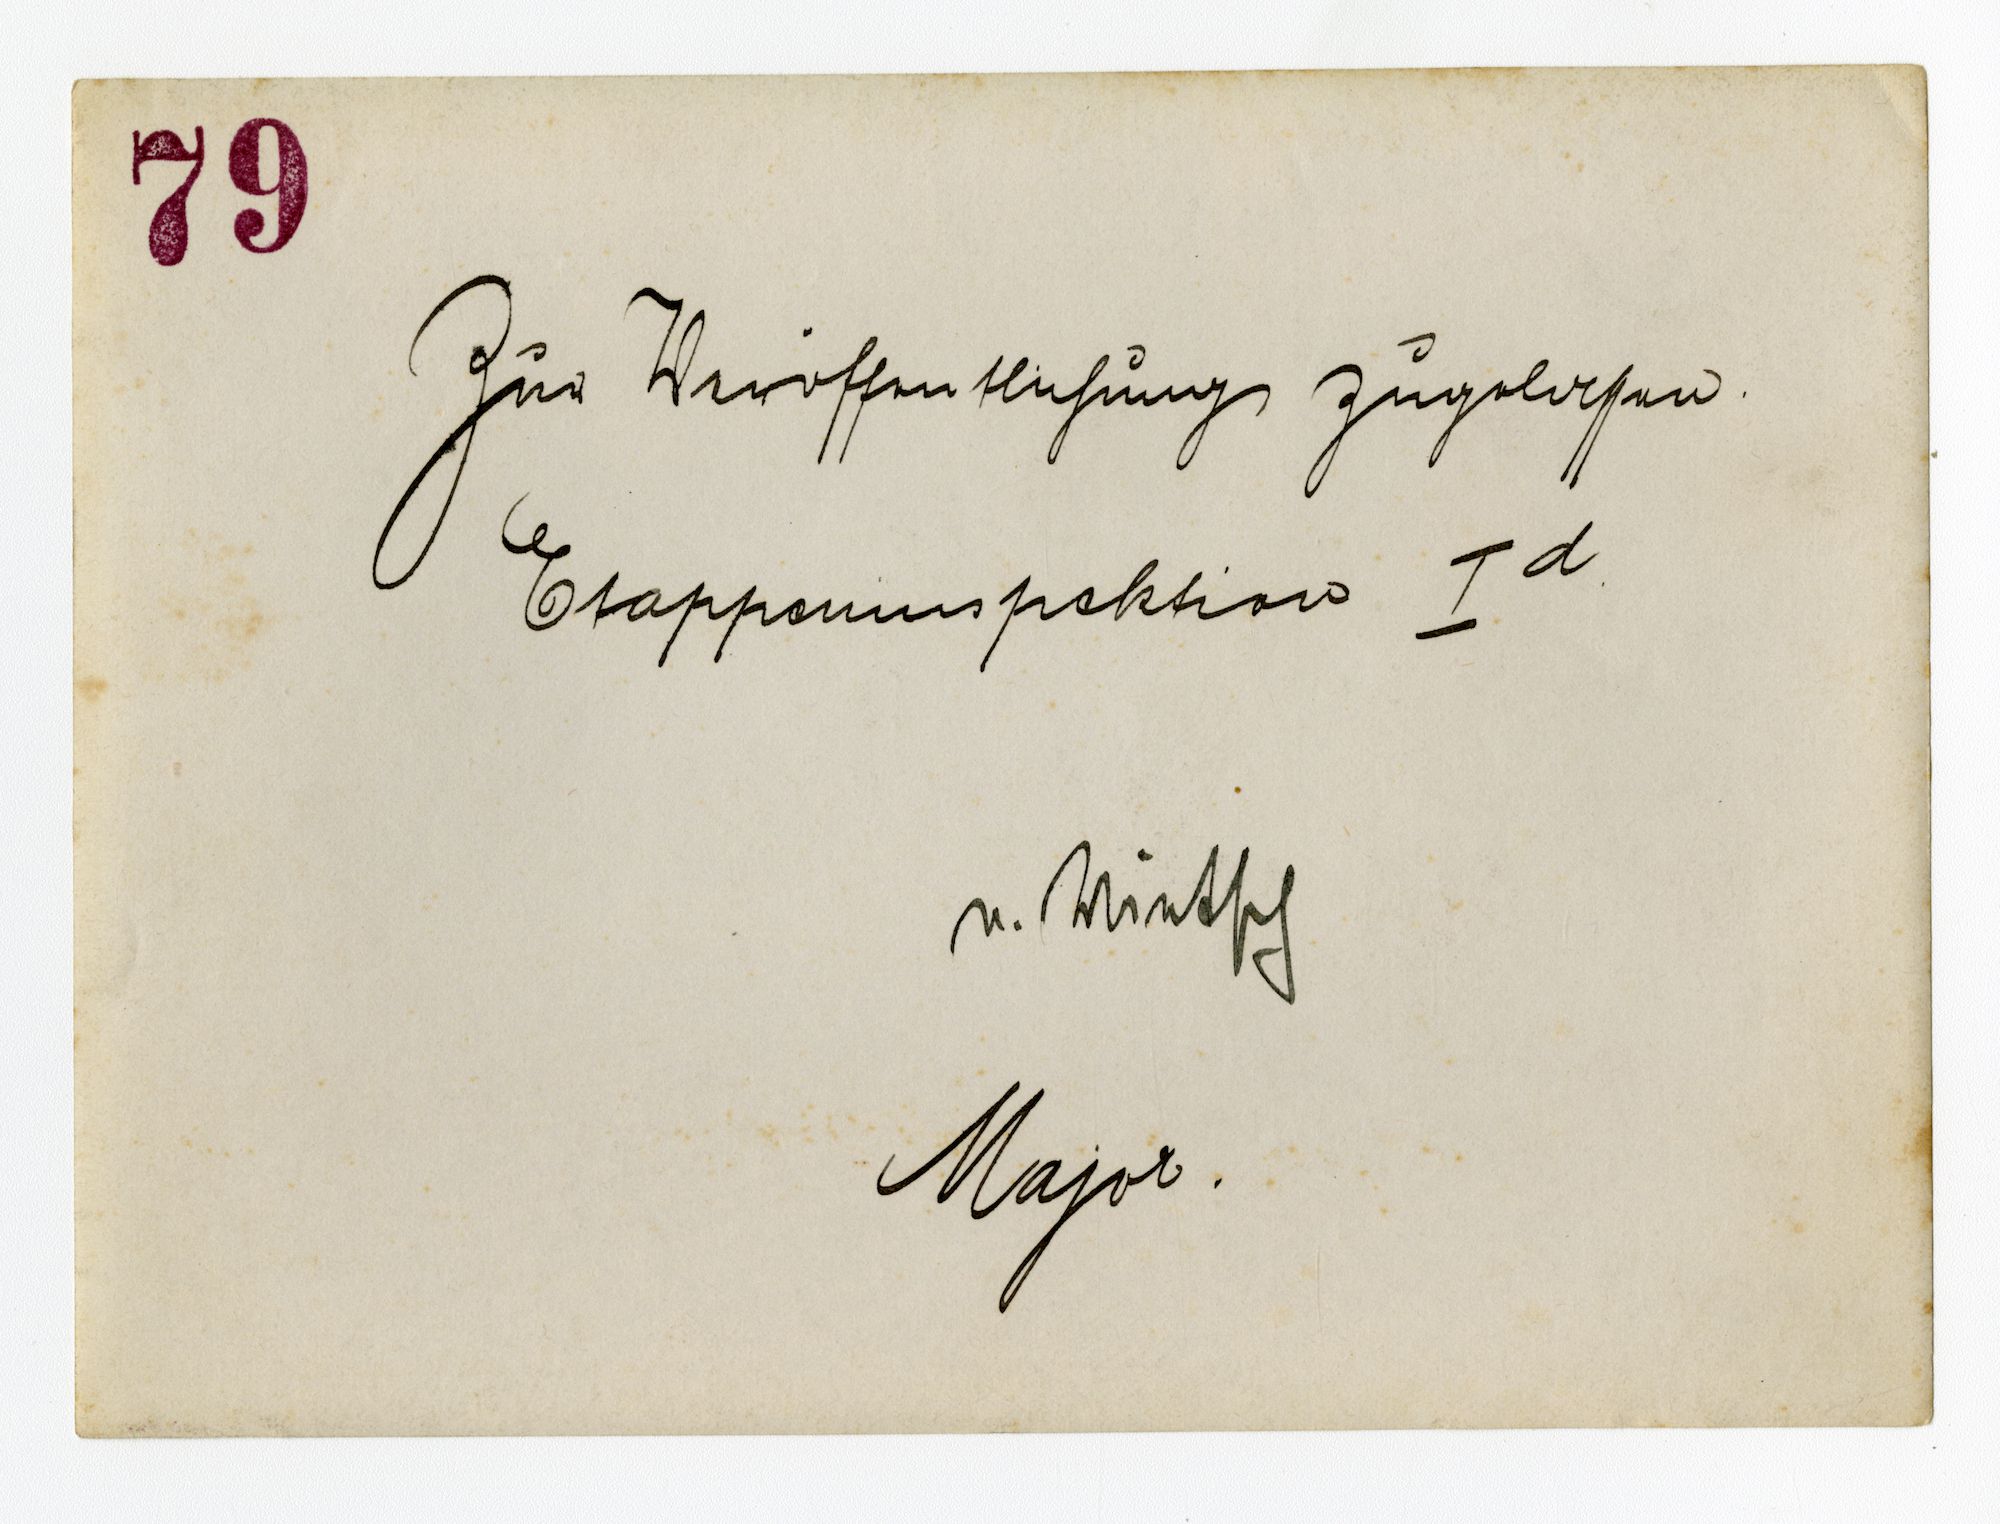 79
Zur Veröffentlichung zugelassen.
Etappeninspektion I d.
v.
Major.